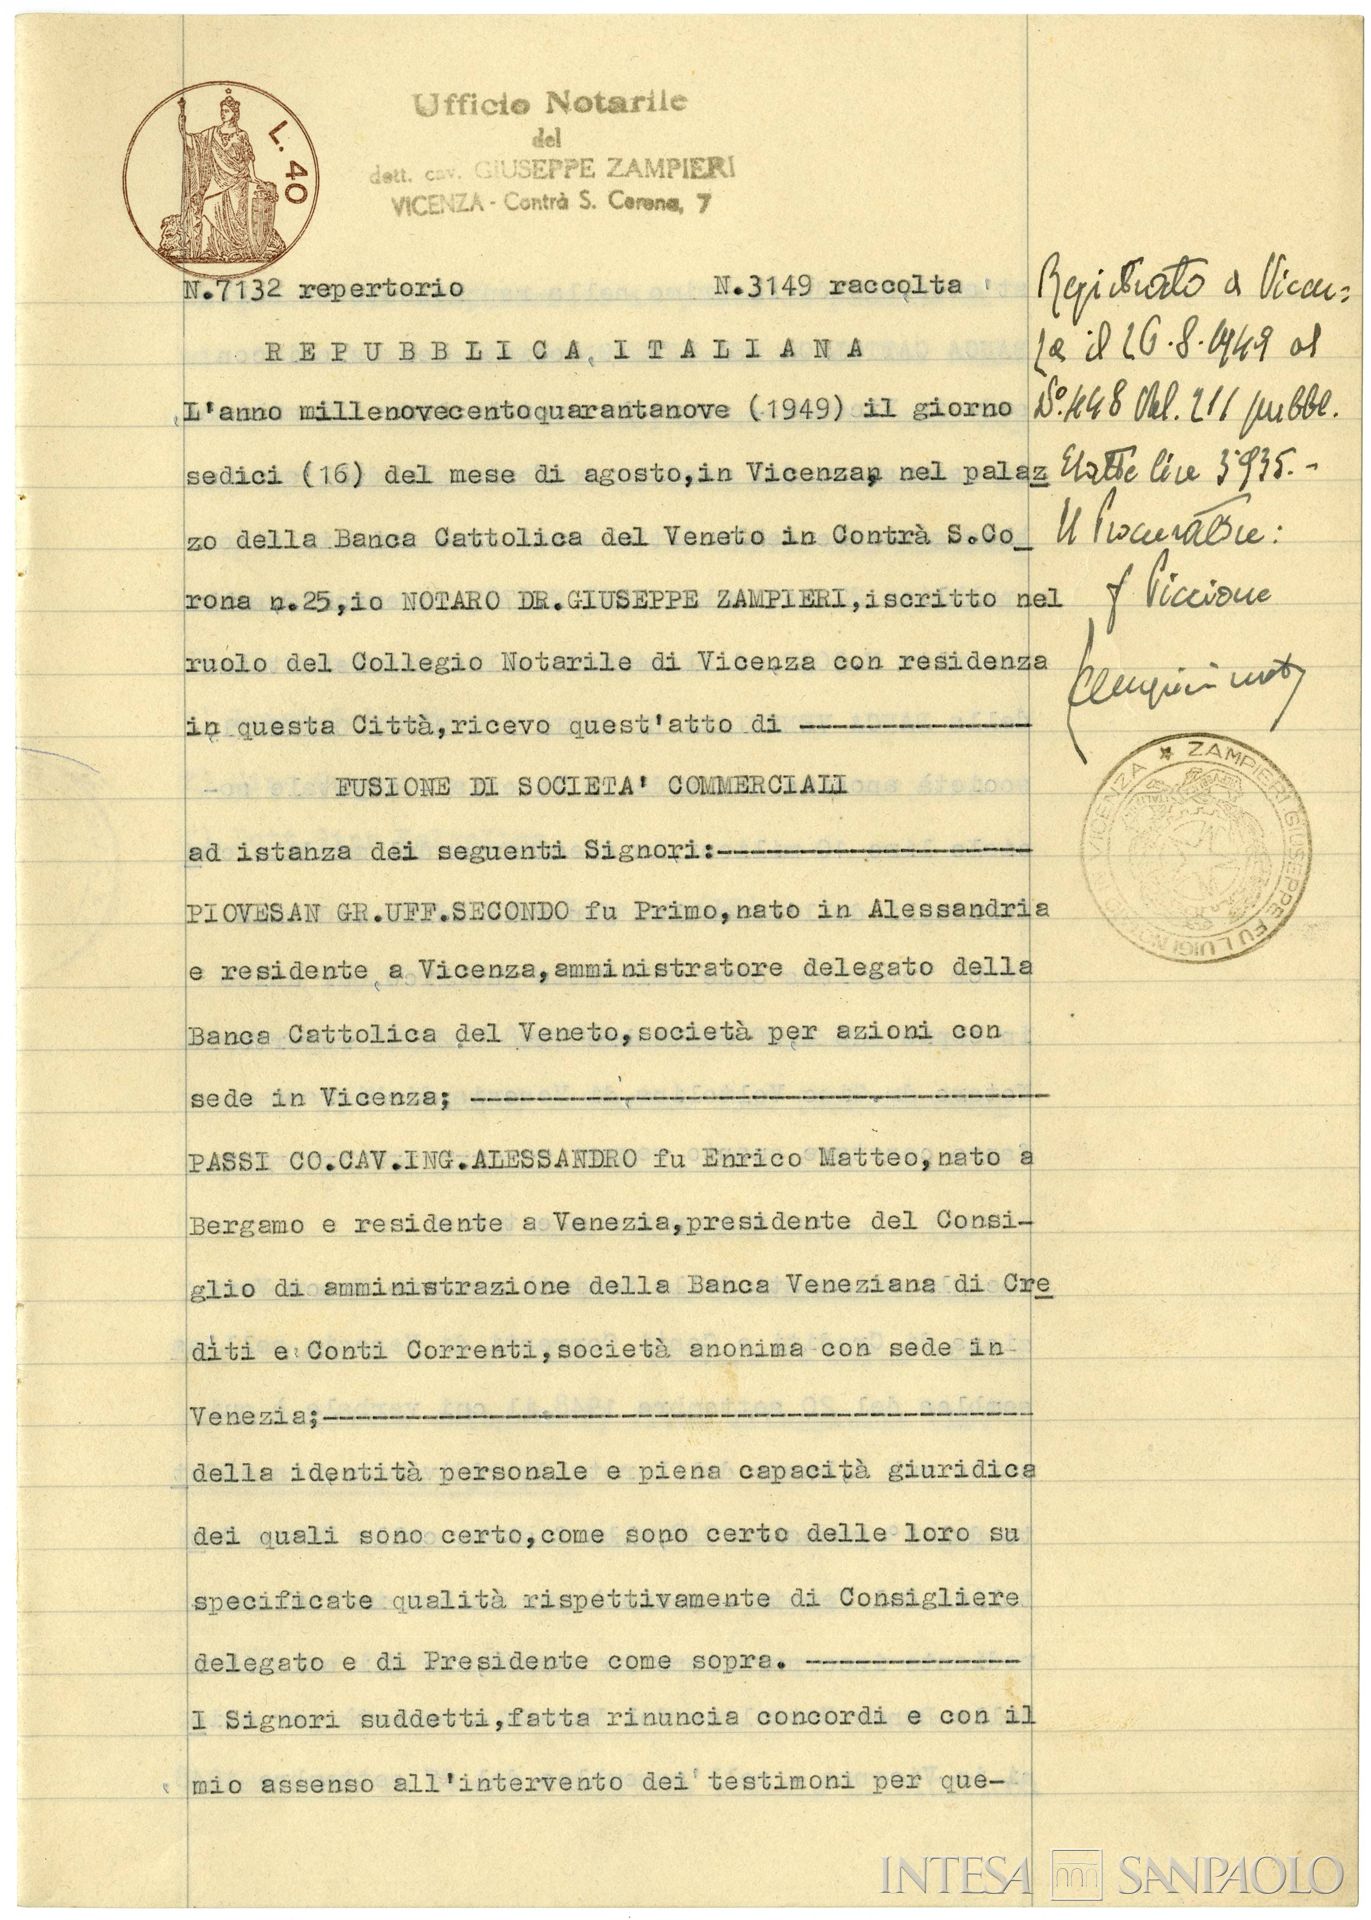 L. 40
Ufficio Notarile
del
dott. cav. GIUSEPPE ZAMPIERI
VICENZA - Contrà S. Corona, 7
N.7132 repertorio N.3149 raccolta
REPUBBLICA ITALIANA
L'anno millenovecentoquarantanove (1949) il giorno
sedici (16) del mese di agosto,in Vicenza, nel palaz
zo della Banca Cattolica del Veneto in Contrà S.Co_
rona n.25,io NOTARO DR.GIUSEPPE ZAMPIERI,iscritto nel
ruolo del Collegio Notarile di Vicenza con residenza
in questa Città,ricevo quest'atto di ----------------
FUSIONE DI SOCIETA' COMMERCIALI
ad istanza dei seguenti Signori:--------------------
PIOVESAN GR.UFF.SECONDO fu Primo,nato in Alessandria
e residente a Vicenza,amministratore delegato della
Banca Cattolica del Veneto,società per azioni con
sede in Vicenza; ------------------------------------
PASSI CO.CAV.ING.ALESSANDRO fu Enrico Matteo,nato a
Bergamo e residente a Venezia,presidente del Consi-
glio di amministrazione della Banca Veneziana di Cre
diti e Conti Correnti,società anonima con sede in
Venezia;--------------------------------------------
della identità personale e piena capacità giuridica
dei quali sono certo,come sono certo delle loro su
specificate qualità rispettivamente di Consigliere
delegato e di Presidente come sopra. --------------
I Signori suddetti,fatta rinuncia concordi e con il
mio assenso all'intervento dei testimoni per que-
Registrato a Vicen=
za il 26.8.1949 al
N°.448 Vol. 211 pubbl.
Esatte lire 5935.-
Il Procuratore:
f Piccione
Zampieri not
ZAMPIERI GIUSEPPE FU LUIGI VICENZA
INTESA SANPAOLO